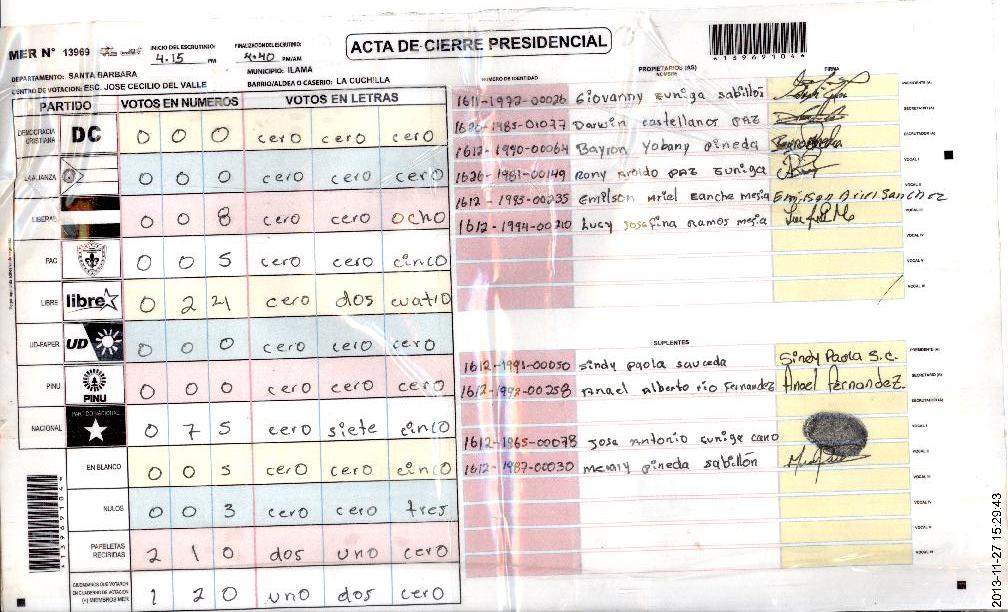 MER N° 13969
INICIO DEL ESCRUTINIO: 4.15 PM
FINALIZACION DEL ESCRUTINIO: 4:40 PM/AM
ACTA DE CIERRE PRESIDENCIAL
*13969104*
DEPARTAMENTO: SANTA BARBARA
MUNICIPIO: ILAMA
CENTRO DE VOTACION: ESC. JOSE CECILIO DEL VALLE
BARRIO/ALDEA O CASERIO: LA CUCHILLA
PARTIDO VOTOS EN NUMEROS VOTOS EN LETRAS
DEMOCRACIA CRISTIANA DC 0 0 0 cero cero cero
LA ALIANZA 0 0 0 cero cero cero
LIBERAL 0 0 8 cero cero ocho
PAC 0 0 5 cero cero cinco
LIBRE libre 0 2 4 cero dos cuatro
UD-FAPER UD 0 0 0 cero cero cero
PINU PINU 0 0 0 cero cero cero
NACIONAL PARTIDO NACIONAL 0 7 5 cero siete cinco
EN BLANCO 0 0 5 cero cero cinco
NULOS 0 0 3 cero cero tres
PAPELETAS RECIBIDAS 2 1 0 dos uno cero
CIUDADANOS QUE VOTARON EN CUADERNO DE VOTACION (+) MIEMBROS MER 1 2 0 uno dos cero
*13969104*
NUMERO DE IDENTIDAD PROPIETARIOS (AS) NOMBRE FIRMA
1611-1972-00026 Giovanny zuniga sabillon PRESIDENTE (A)
1626-1985-01077 Darwin castellanos PAZ SECRETARIO (A)
1612-1990-00064 Bayron Yobany pineda ESCRUTADOR (A)
1626-1981-00149 Rony PAZ zuniga VOCAL I
1612-1985-00235 Emilson Ariel sanche mejia Emilson Ariel Sanchez VOCAL II
1612-1994-00210 Lucy josefina ramos mejia VOCAL III
VOCAL IV
VOCAL V
VOCAL VI
SUPLENTES
1612-1991-00050 sindy paola sauceda Sindy Paola S.C. PRESIDENTE (A)
1612-1992-00258 Anael Alberto rio Fernandez Anael Fernandez. SECRETARIO (A)
ESCRUTADOR (A)
1612-1965-00078 Jose Antonio zuniga cano VOCAL I
1612-1987-00030 pineda sabillón VOCAL II
VOCAL III
VOCAL IV
VOCAL V
VOCAL VI
2013-11-27 15:29:43